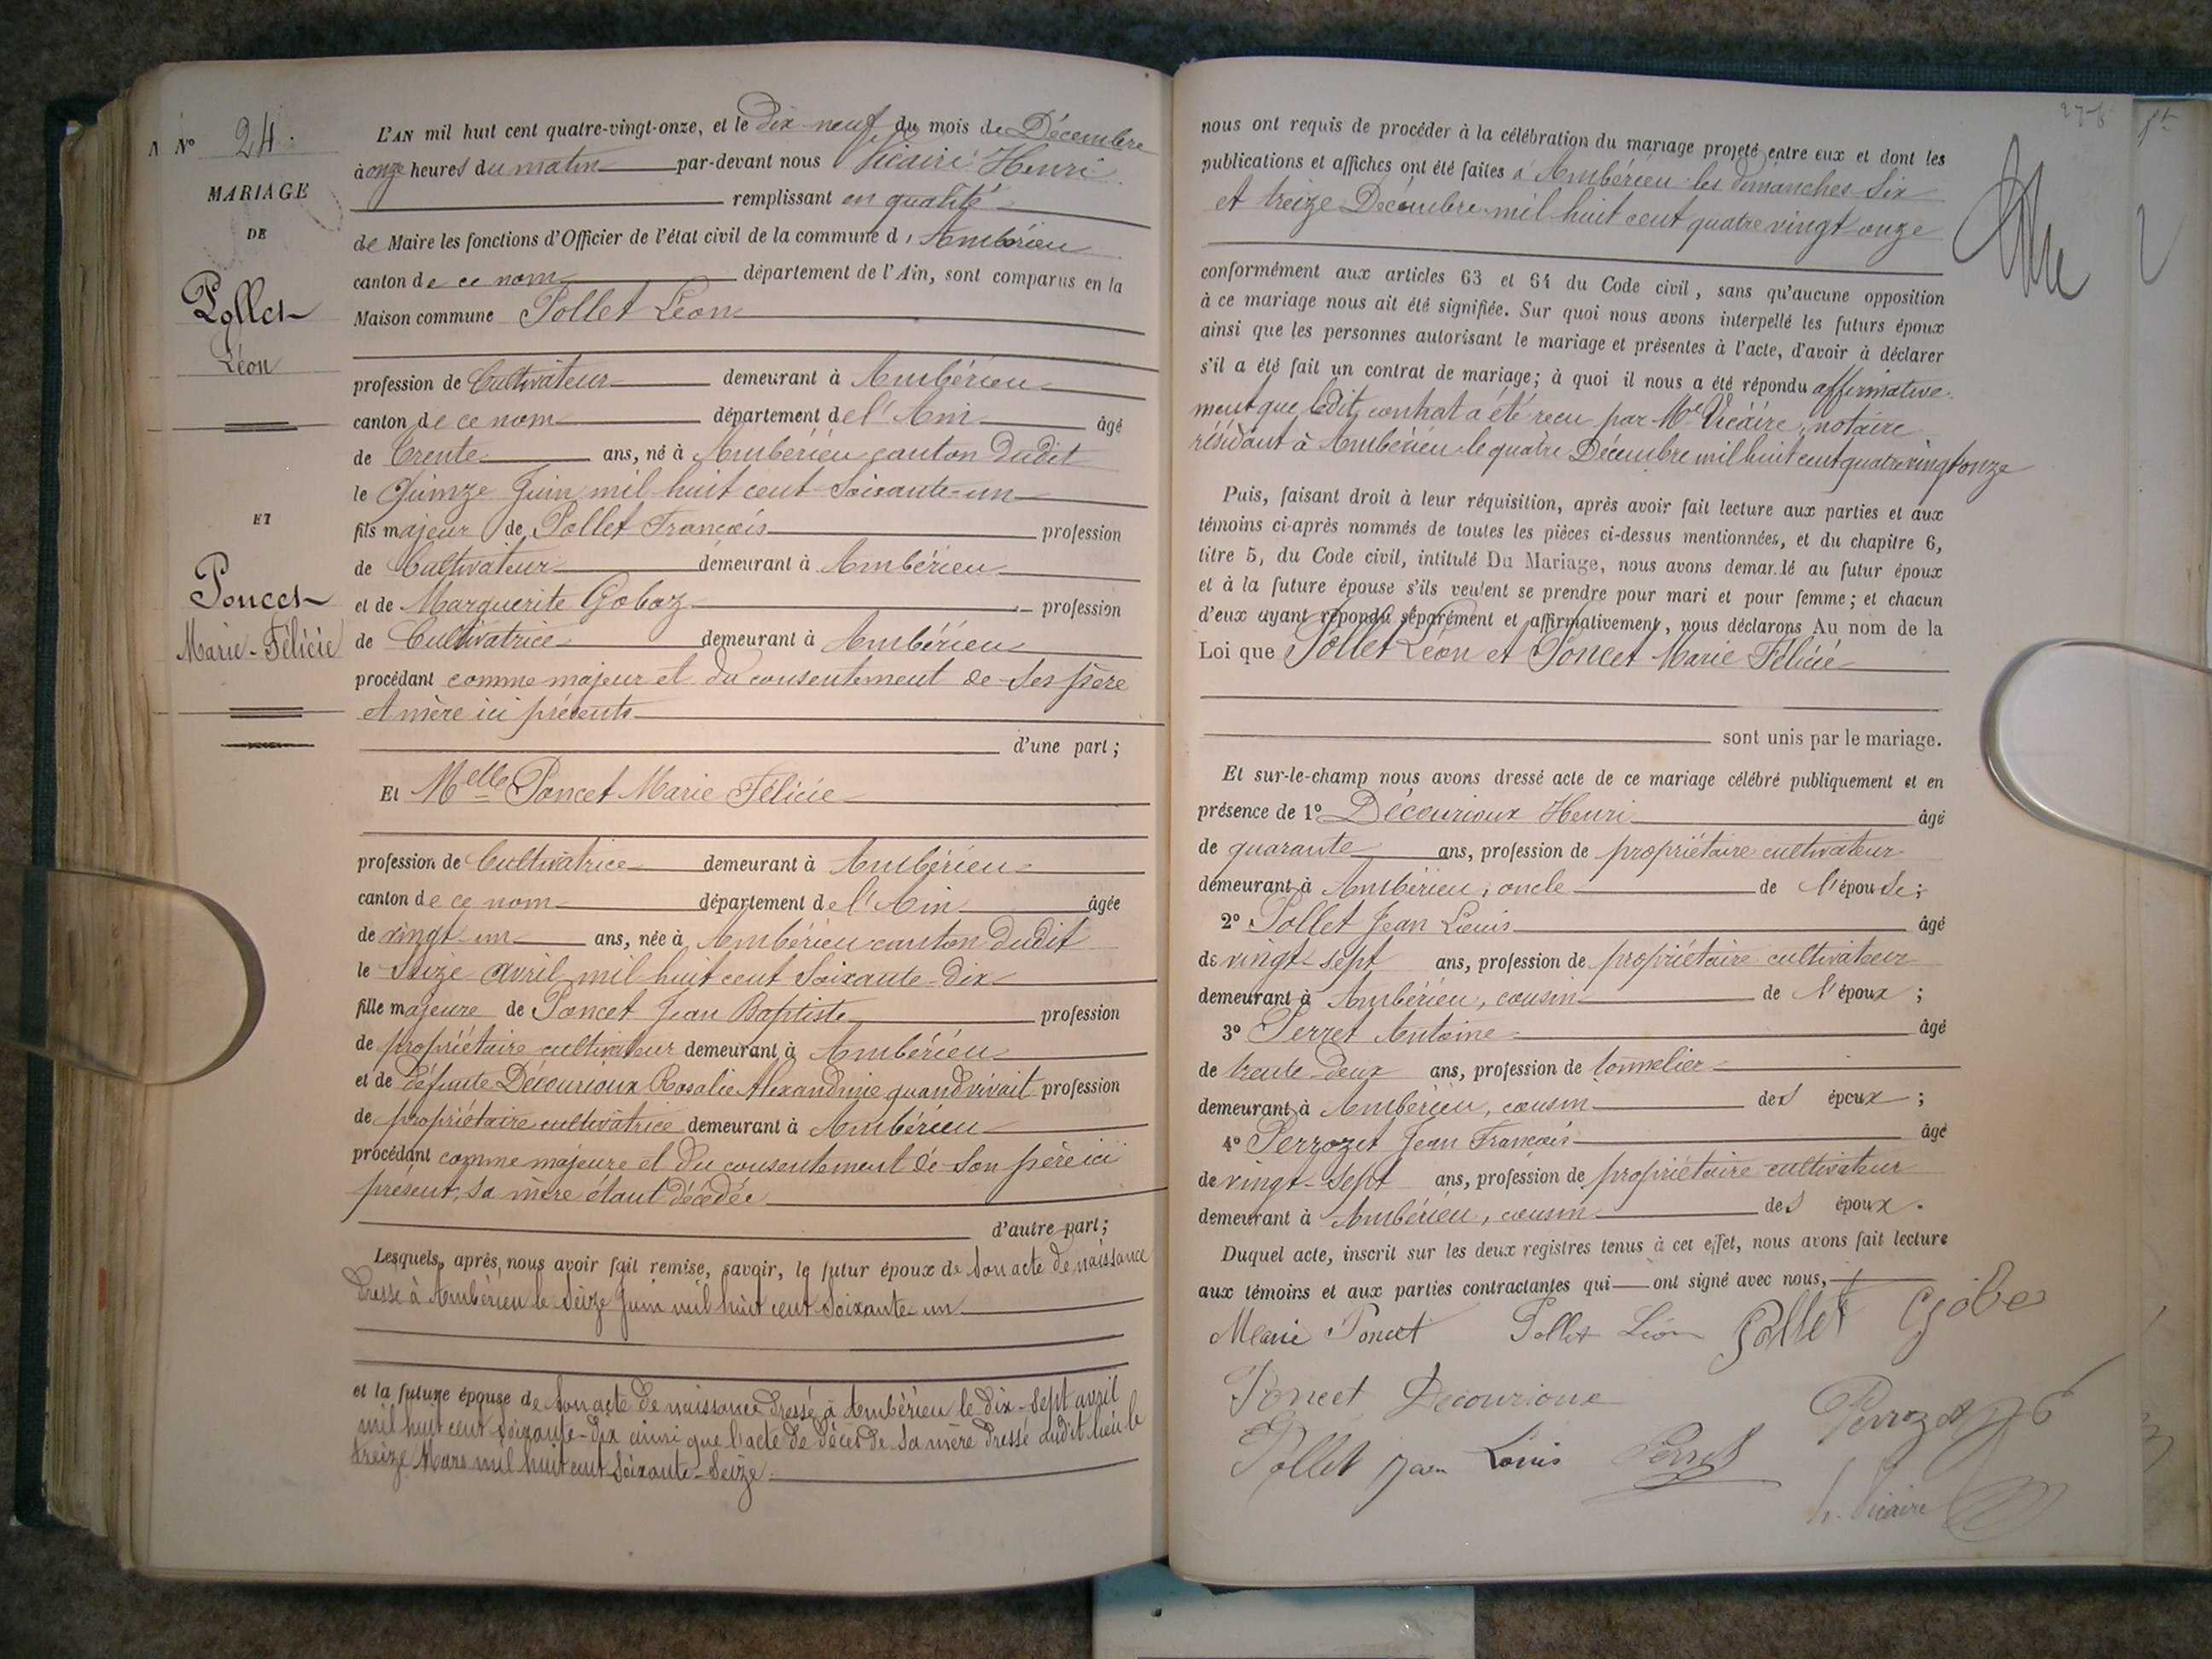 N° 24.
MARIAGE
DE
Pollet
Léon
ET
Poncet
Marie-Félicie
L'AN mil huit cent quatre-vingt-onze, et le dix-neuf du mois de Décembre
à onze heures du matin par-devant nous Vicaire Henri
remplissant en qualité
de Maire les fonctions d'Officier de l'état civil de la commune d'Ambérieu
canton de ce nom département de l'Ain, sont comparus en la
Maison commune Pollet Léon
profession de Cultivateur demeurant à Ambérieu
canton de ce nom département de l'Ain âgé
de Trente ans, né à Ambérieu canton dudit
le Quinze Juin mil huit cent soixante-un
fils majeur de Pollet François profession
de Cultivateur demeurant à Ambérieu
et de Marguerite Gobaz profession
de Cultivatrice demeurant à Ambérieu
procédant comme majeur et du consentement de ses père
et mère ici présents
d'une part;
Et Melle Poncet Marie Félicie
profession de Cultivatrice demeurant à Ambérieu
canton de ce nom département de l'Ain âgée
de vingt-un ans, née à Ambérieu canton dudit
le Seize avril mil huit cent soixante-dix
fille majeure de Poncet Jean Baptiste profession
de propriétaire cultivateur demeurant à Ambérieu
et de défunte Décourioux Rosalie Alexandrine quand vivait profession
de propriétaire cultivatrice demeurant à Ambérieu
procédant comme majeure et du consentement de son père ici
présent, sa mère étant décédée
d'autre part;
Lesquels, après nous avoir fait remise, savoir, le futur époux de son acte de naissance
dressé à Ambérieu le seize Juin mil huit cent soixante un
et la future épouse de son acte de naissance dressé à Ambérieu le dix-sept avril
mil huit cent soixante-dix ainsi que l'acte de décès de sa mère dressé audit lieu le
treize Mars mil huit cent soixante-seize.
nous ont requis de procéder à la célébration du mariage projeté entre eux et dont les
publications et affiches ont été faites à Ambérieu les dimanches six
et treize Décembre mil huit cent quatre vingt onze
conformément aux articles 63 et 64 du Code civil, sans qu'aucune opposition
à ce mariage nous ait été signifiée. Sur quoi nous avons interpellé les futurs époux
ainsi que les personnes autorisant le mariage et présentes à l'acte, d'avoir à déclarer
s'il a été fait un contrat de mariage; à quoi il nous a été répondu affirmative-
ment que ledit contrat a été reçu par Me Vicaire, notaire
résidant à Ambérieu le quatre Décembre mil huit cent quatre vingt onze
Puis, faisant droit à leur réquisition, après avoir fait lecture aux parties et aux
témoins ci-après nommés de toutes les pièces ci-dessus mentionnées, et du chapitre 6,
titre 5, du Code civil, intitulé Du Mariage, nous avons demandé au futur époux
et à la future épouse s'ils veulent se prendre pour mari et pour femme; et chacun
d'eux ayant répondu séparément et affirmativement, nous déclarons Au nom de la
Loi que Pollet Léon et Poncet Marie Félicie
sont unis par le mariage.
Et sur-le-champ nous avons dressé acte de ce mariage célébré publiquement et en
présence de 1° Décourioux Henri âgé
de quarante ans, profession de propriétaire cultivateur
demeurant à Ambérieu, oncle de l'épouse;
2° Pollet Jean Louis âgé
de vingt-sept ans, profession de propriétaire cultivateur
demeurant à Ambérieu, cousin de l'époux;
3° Perret Antoine âgé
de trente-deux ans, profession de tonnelier
demeurant à Ambérieu, cousin des époux;
4° Perrozet Jean François âgé
de vingt-sept ans, profession de propriétaire cultivateur
demeurant à Ambérieu, cousin des époux.
Duquel acte, inscrit sur les deux registres tenus à cet effet, nous avons fait lecture
aux témoins et aux parties contractantes qui ont signé avec nous,
Marie Poncet Pollet Léon Pollet
Poncet Decourioux Perrozet
Pollet Jean Louis Perret
h. Vicaire